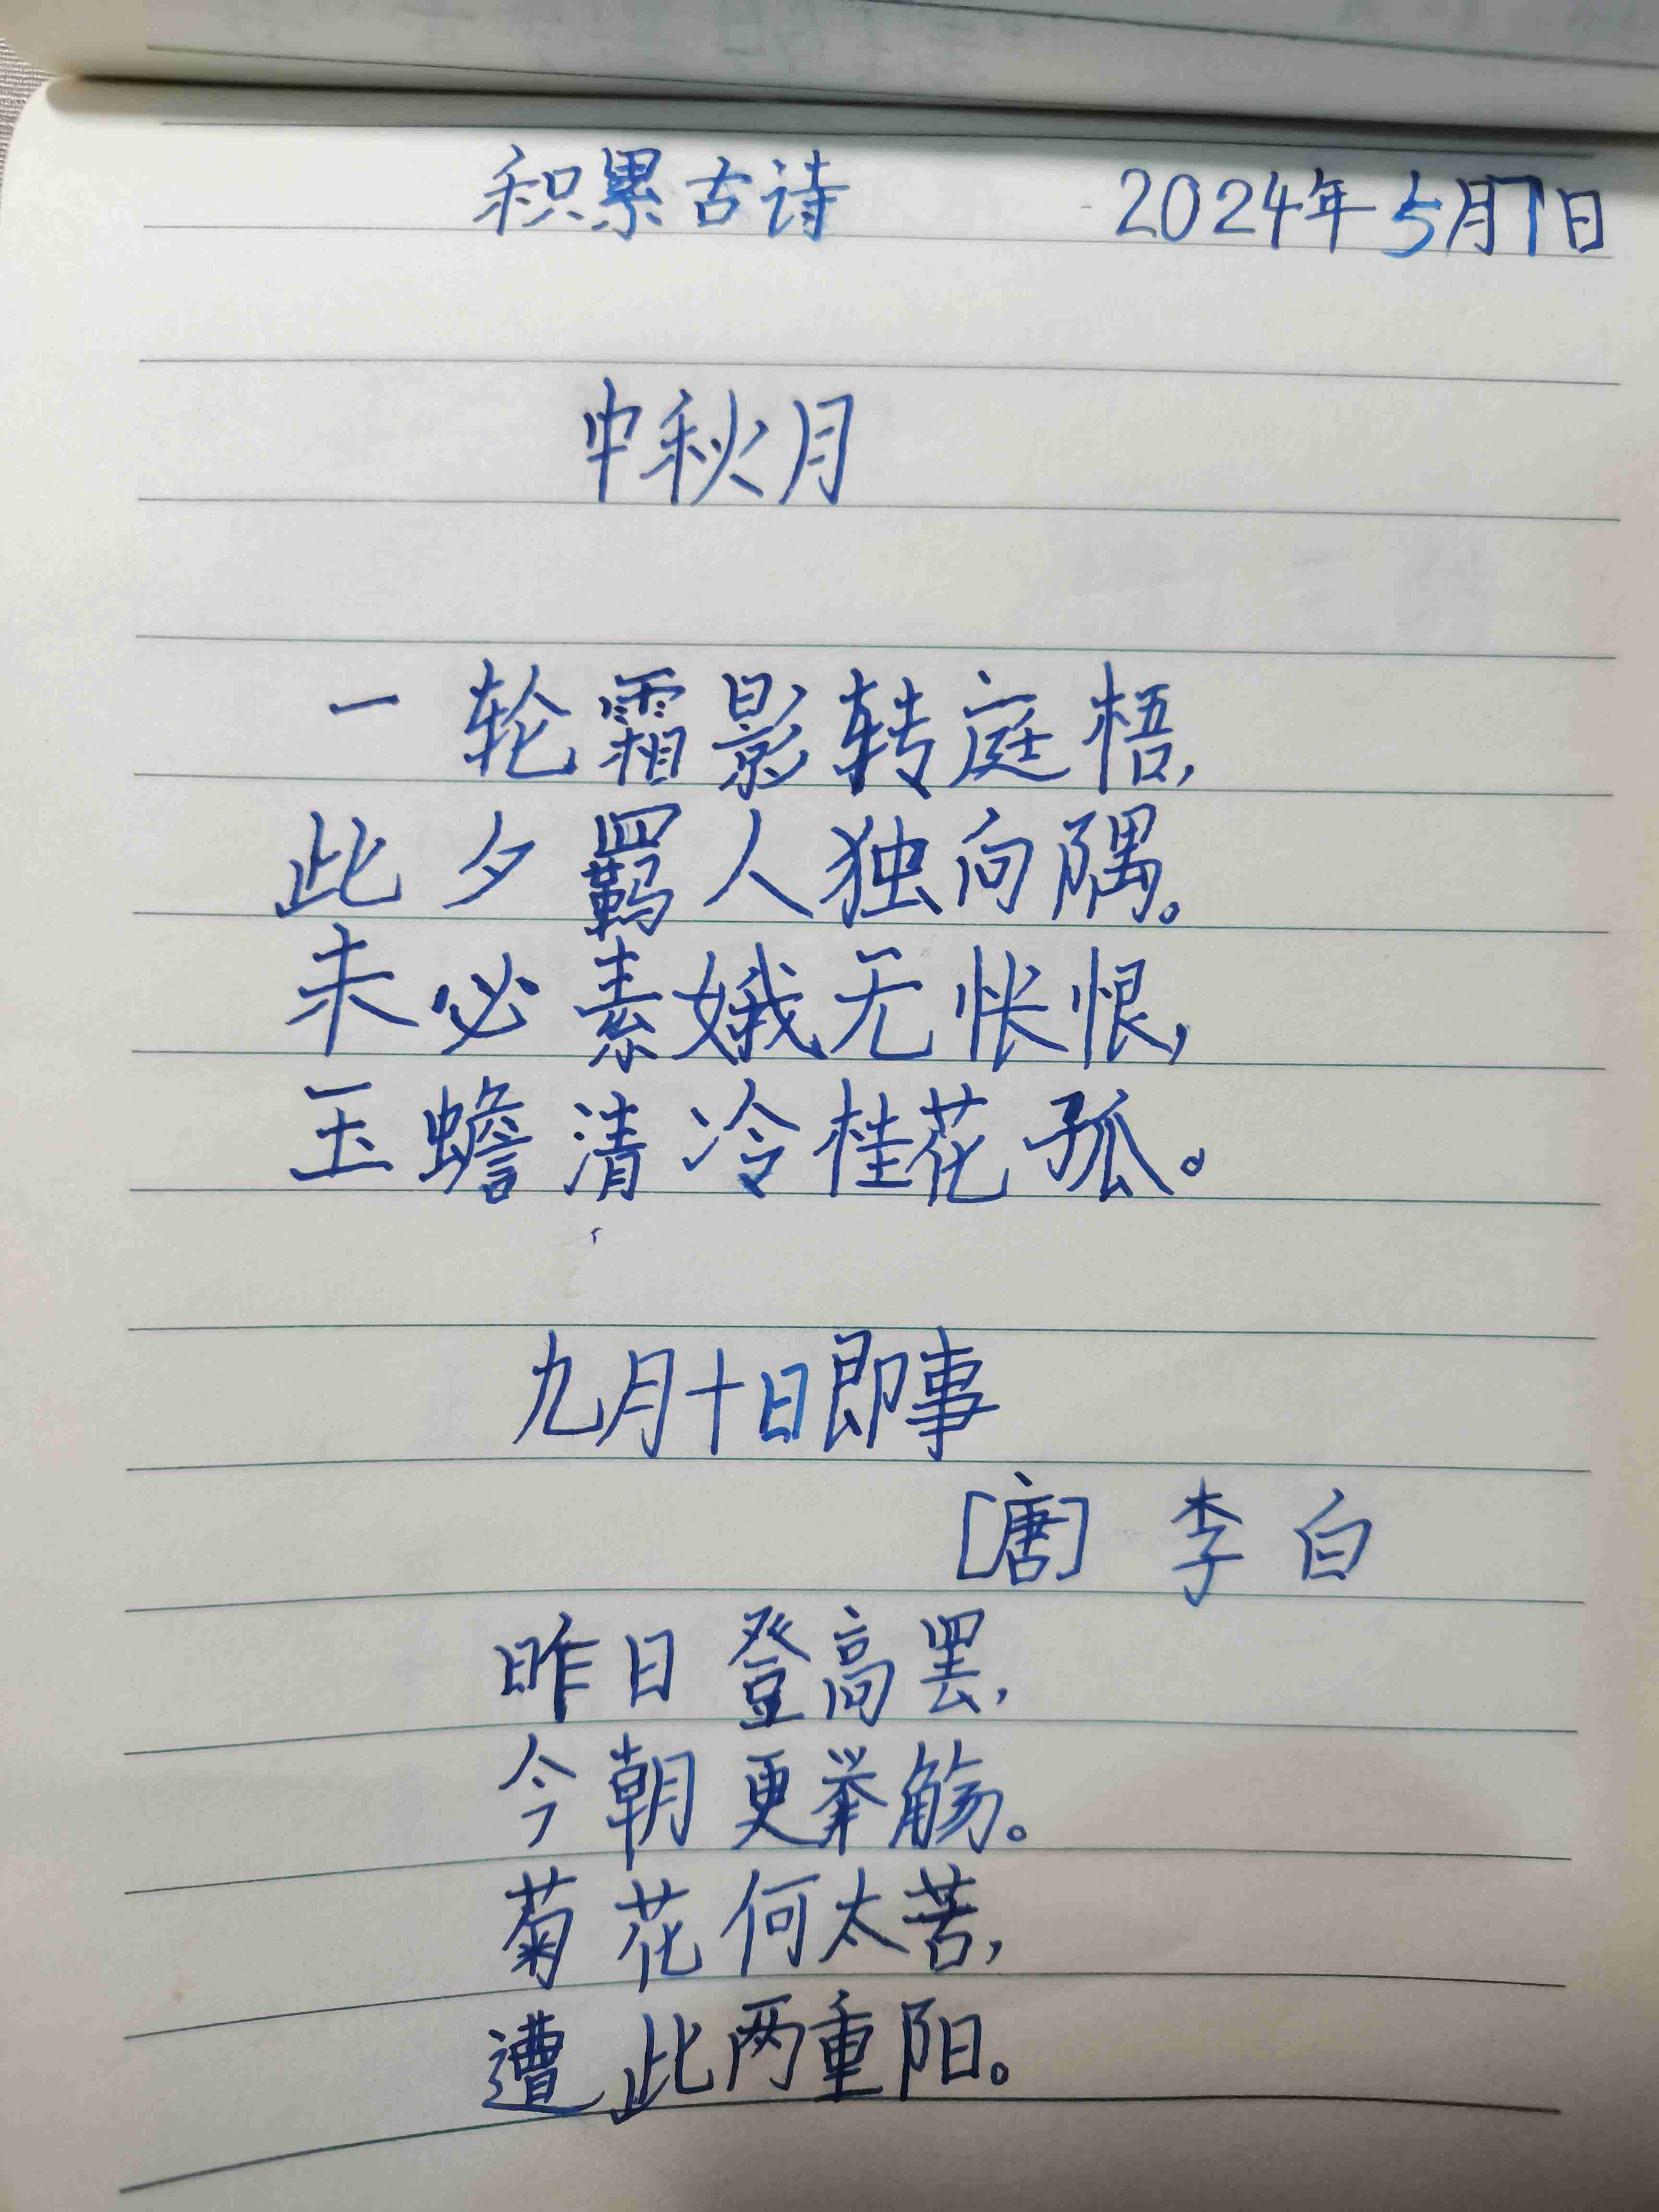 积累古诗 2024年5月7日
中秋月
一轮霜影转庭梧,
此夕羁人独向隅。
未必素娥无怅恨,
玉蟾清冷桂花孤。
九月十日即事
[唐] 李白
昨日登高罢,
今朝更举觞。
菊花何太苦,
遭此两重阳。